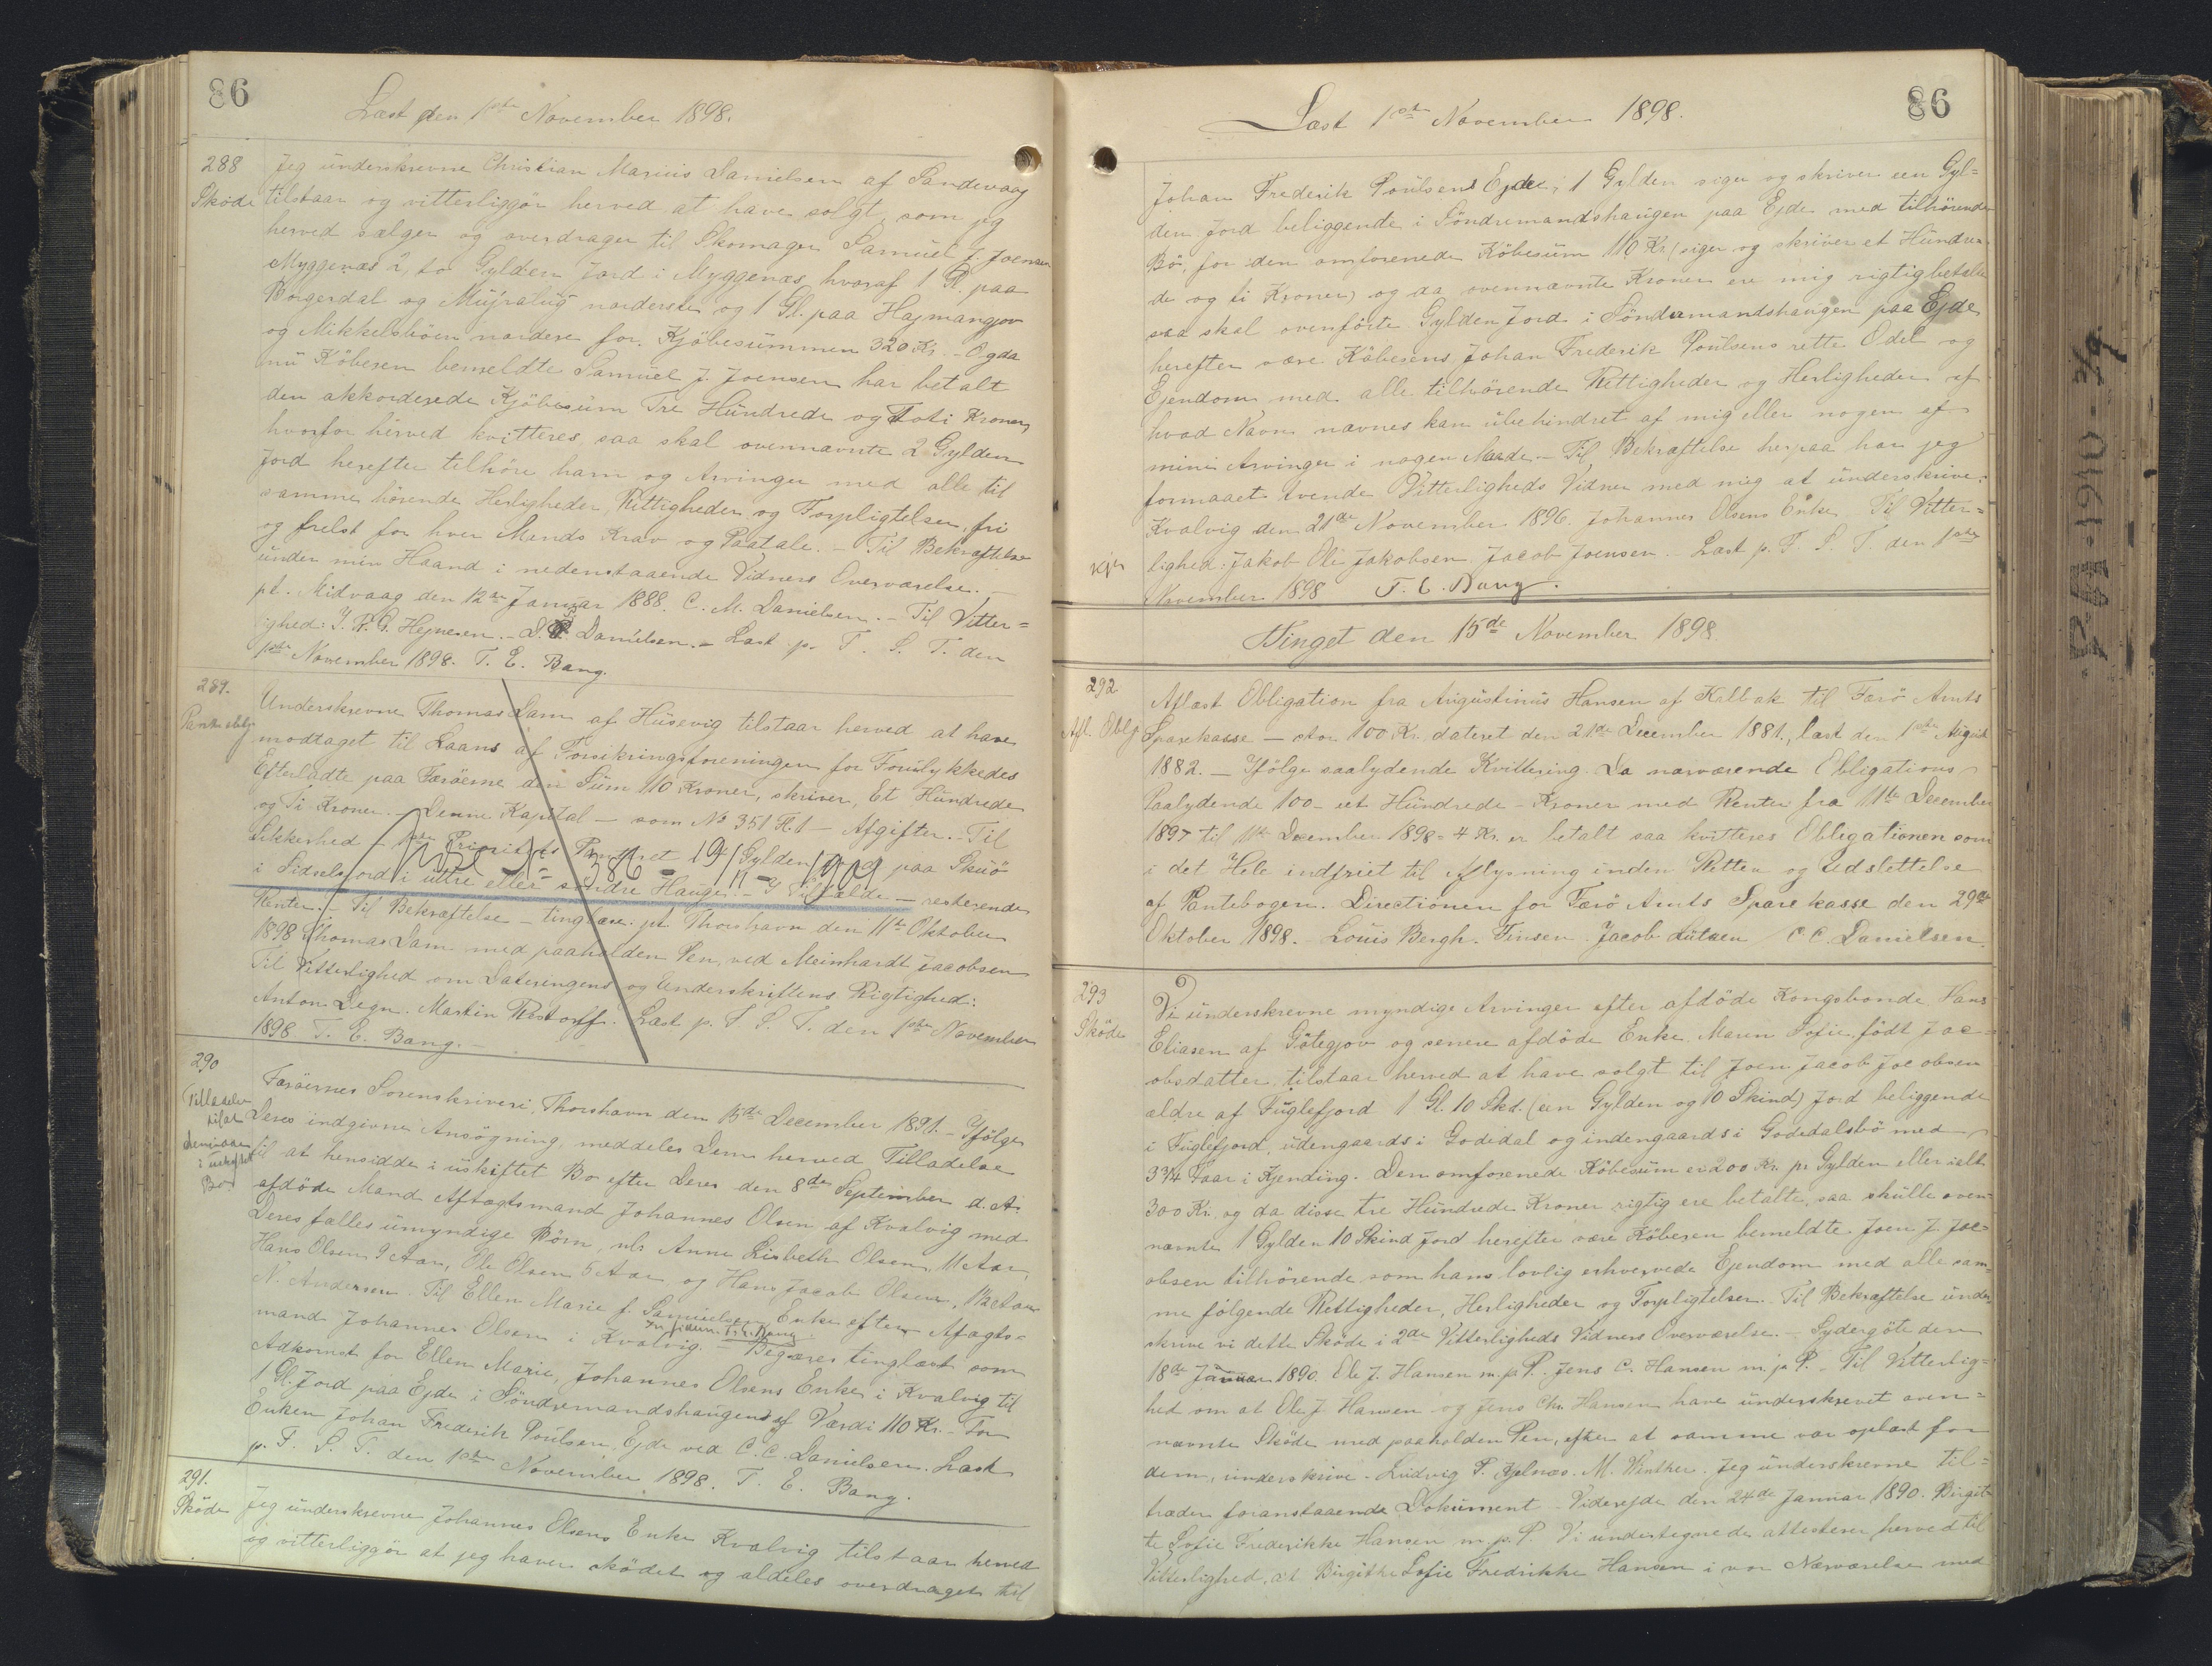 86
Læst den 1ste November 1898.
288
Sköde
Jeg underskrevne Christian Marius Danielsen af Sandevaag
tilstaar og vitterliggör herved at have solgt, som jeg
herved sælger og overdrager til Skomager Samuel J. Joensen
Myggenæs 2, to Gylden Jord i Myggenæs, hvoraf 1 Gl. paa
Borgerdal og Mujralug norderste og 1 Gl. paa Hajmangjov
og Mikkelsböen nordere for Kjöbesummen 320 Kr. - Og da
nu Köberen bemeldte Samuel J. Joensen har betalt
den akkorderede Kjöbesum Tre Hundrede og Toti Kroner,
hvorfor herved kvitteres, saa skal ovennævnte 2 Gylden
Jord herefter tilhöre ham og Arvinger med alle til
samme hörende Herligheder, Rettigheder og Forpligtelser, fri
og frelst for hver Mands Krav og Paatale. - Til Bekræftelse
under min Haand i nedenstaaende Vidners Overværelse. -
pt. Midvaag den 12te Januar 1888. C. M. Danielsen. - Til Vitter=
ighed: J. F. G. Hejnesen. - D. P. Danielsen. - Læst p. F. S. T. den
1ste November 1898. T. E. Bang.
289.
Pante oblg
Underskrevne Thomas Dam af Husevig tilstaar herved at have
modtaget til Laans af Forsikringsforeningen for Forulykkedes
Efterladte paa Færöerne den Sum 110 Kroner, skriver, Et Hundrede
og Ti Kroner. - Denne Kapital - som No 351 A. 1 - Afgifter. - Til
Sikkerhed - 1ste Prioritets Panteret 1 Gylden Jord paa Skuö
i Sidselsjord i uttre eller söndre Hauge. - I Tilfælde - resterende
Renter. - Til Bekræftelse - tinglæse. pt. Thorshavn den 11te Oktober
1898 Thomas Dam med paaholden Pen, ved Meinhardt Jacobsen
Til Vitterlighed om Dateringens og Underskriftens Rigtighed:
Anton Degn. Martin Restorff. Læst p. F. S. T. den 1ste November
1898. T. E. Bang. -
290
Tilladelse
til at
hensidde
i uskiftet
Bo
Færöernes Sorenskriveri, Thorshavn den 15de December 1891. - Ifölge
Deres indgivne Ansögning, meddeles Dem herved Tilladelse
til at hensidde i uskiftet Bo efter Deres den 8de September d. A.
afdöde Mand Aftægtsmand Johannes Olsen af Kvalvig med
Deres fælles umyndige Börn, nl: Anne Lisbeth Olsen, 11 Aar,
Hans Olsen 9 Aar, Ole Olsen 5 Aar, og Hans Jacob Olsen, 1½ Aar
N. Andersen. Til Ellen Marie f. Samuelsen Enke efter Aftægts=
In fidem T. E. Bang
mand Johannes Olsen i Kvalvig. - Begæres tinglæst som
Adkomst for Ellen Marie, Johannes Olsens Enke i Kvalvig til
1 Gl. Jord paa Ejde i Söndremandshaugen af Værdi 110 Kr. - For
Enken Johan Frederik Poulsen, Ejde ved C. C. Danielsen. Læst
p. F. S. T. den 1ste November 1898. T. E. Bang.
291.
Sköde
Jeg underskrevne Johannes Olsens Enke Kvalvig tilstaar herved
og vitterliggör at jeg haver sködet og aldeles overdraget til
86
Læst 1ste November 1898.
Johan Frederik Poulsens Ejde, 1 Gylden siger og skriver een Gyl=
den Jord beliggende i Söndremandshaugen paa Ejde med tilhörende
Bö, for den omforenede Köbesum 110 Kr. (siger og skriver et Hundre=
de og ti Kroner) og da ovennævnte Kroner ere mig rigtig betalte
saa skal ovenförte Gylden Jord i Söndremandshaugen paa Ejde
herefter være Köberens Johan Frederik Poulsens rette Odel og
Ejendom med alle tilhörende Rettigheder og Herligheder af
hvad Navn nævnes kan ubehindret af mig eller nogen af
mine Arvinger i nogen Maade. - Til Bekræftelse herpaa har jeg
formaaet tvende Vitterligheds Vidner med mig at underskrive.
Kvalvig den 21de November 1896. Johannes Olsens Enke. Til Vitter=
lighed: Jakob Ole Jakobsen. Jacob Joensen. Læst p. F. S. T. den 1ste
November 1898 T. E. Bang.
Tinget den 15de November 1898
292
Afl. Oblg
Aflæst Obligation fra Augustinus Hansen af Kalbak til Færö Amts
Sparekasse - stor 100 Kr. dateret den 21de December 1881, læst den 1ste August
1882. - Ifölge saalydende Kvittering. Da nærværende Obligations
Paalydende 100 - eet Hundrede - Kroner med Renter fra 11te December
1897 til 11te December 1898 = 4 Kr. er betalt saa kvitteres Obligationen som
i det Hele indfriet til Aflysning inden Retten og Udslettelse
af Pantebogen. Directionen for Færö Amts Sparekasse den 29de
Oktober 1898. Louis Bergh. Finsen. Jacob Lützen / C. C. Danielsen.
293
Sköde
Vi underskrevne myndige Arvinger efter afdöde Kongsbonde Hans
Eliasen af Götegjov og senere afdöde Enke Maren Sofie, födt Jac=
obsdatter, tilstaar herved at have solgt til Joen Jacob Jacobsen
ældre af Fuglefjord 1 Gl. 10 Skd. (een Gylden og 10 Skind) Jord beliggende
i Fuglefjord, udengaards i Godedal og indengaards i Godedalsbö med
3 3/4 Faar i Kjending. Den omforenede Köbesum er 200 Kr. pr Gylden eller ialt
300 Kr. og da disse tre Hundrede Kroner rigtig ere betalte, saa skulle oven=
nævnte 1 Gylden 10 Skind Jord herefter være Köberen bemeldte Joen J. Jac=
obsen tilhörende som hans lovlig erhvervede Ejendom med alle sam=
me fölgende Rettigheder, Herligheder og Forpligtelser. Til Bekræftelse under=
skrive vi dette Sköde i 2de Vitterligheds Vidners Overværelse. - Sydergöte den
18de Januar 1890. Ole J. Hansen m. p. P. Jens C. Hansen m. p. P. - Til Vitterlig=
hed om at Ole J. Hansen og Jens Chr. Hansen have underskrevet oven=
nævnte Sköde med paaholden Pen, efter at samme var oplæst for
dem, underskrive. Ludvig P. M. Winther. Jeg underskrevne til=
træder foranstaaende Dokument - Viderejde den 24de Januar 1890. Birgit=
te Sofie Frederikke Hansen m. p. P. Vi undertegnede attesterer herved til
Vitterlighed, at Birgitte Sofie Fredrikke Hansen i vor Nærværelse med